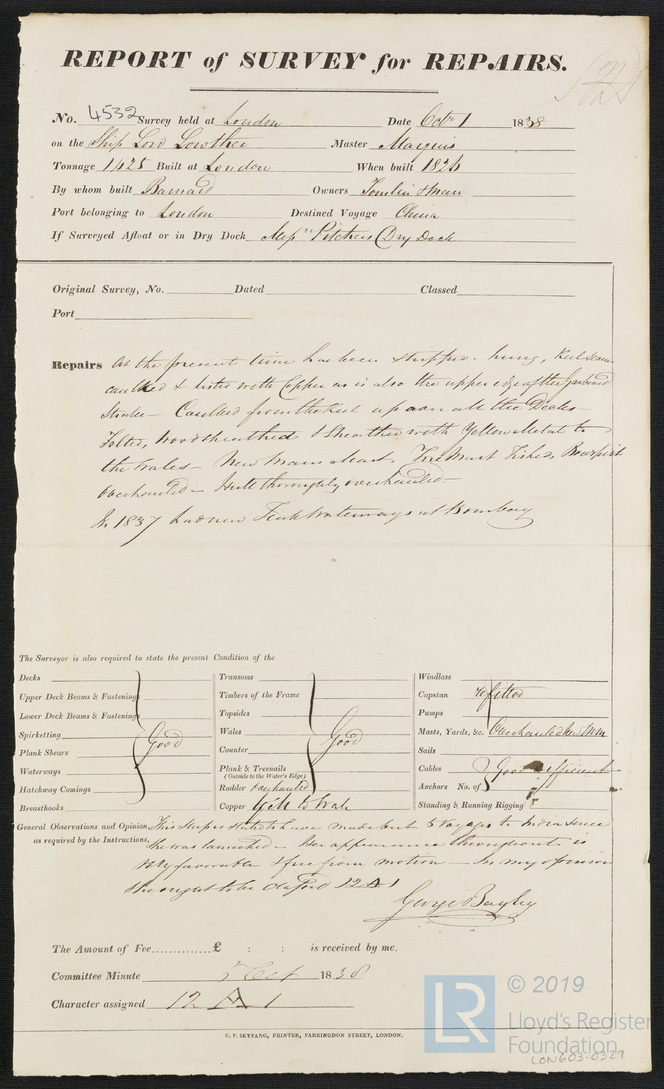 REPORT of SURVEY for REPAIRS.
No. 4532 Survey held at London Date Octr 1 1838
on the Ship Lord Lowther Master Marquis
Tonnage 1425 Built at London When built 1826
By whom built Barnard Owners Tomlin & Man
Port belonging to London Destined Voyage China
If Surveyed Afloat or in Dry Dock Pitchers Dry Dock
Original Survey, No. Dated Classed
Port
Repairs At the present time has been stripped. hung, Keel seams
caulked & listed with Copper as is also the upper edge of the Garboard
Strake - Caulked from the keel up on all the Decks -
Felted, Wood sheathed & Sheathed with Yellow Metal to
the Wales - New Main Mast. Fore Mast Fished, Bowsprit
Overhauled - Hull thoroughly overhauled -
In 1837 had new Teak Waterways at Bombay
The Surveyor is also required to state the present Condition of the
Decks Transoms Windlass
Upper Deck Beams & Fastenings Timbers of the Frame Capstan refitted
Lower Deck Beams & Fastenings Topsides Pumps
Spirketting Good Wales Good Masts, Yards, &c. Overhauled
Plank Shears Counter Sails
Waterways Plank & Treenails (Outside to the Water's Edge) Cables Good & sufficient
Hatchway Comings Rudder Overhauled Anchors No. of
Breasthooks Copper Y. M. to Wales Standing & Running Rigging
General Observations and Opinion, This Ship is stated to have made but 5 Voyages to India since
as required by the Instructions, She was launched - Her appearance throughout is
very favorable & free from motion - In my opinion
She ought to be classed 12 A 1
George Bayley
The Amount of Fee..............£ : : is received by me,
Committee Minute 5 Oct 1838
Character assigned 12 A 1
C. F. SEYFANG, PRINTER, FARRINGDON STREET, LONDON.
LR © 2019
Lloyd's Register
Foundation
LON603-0327